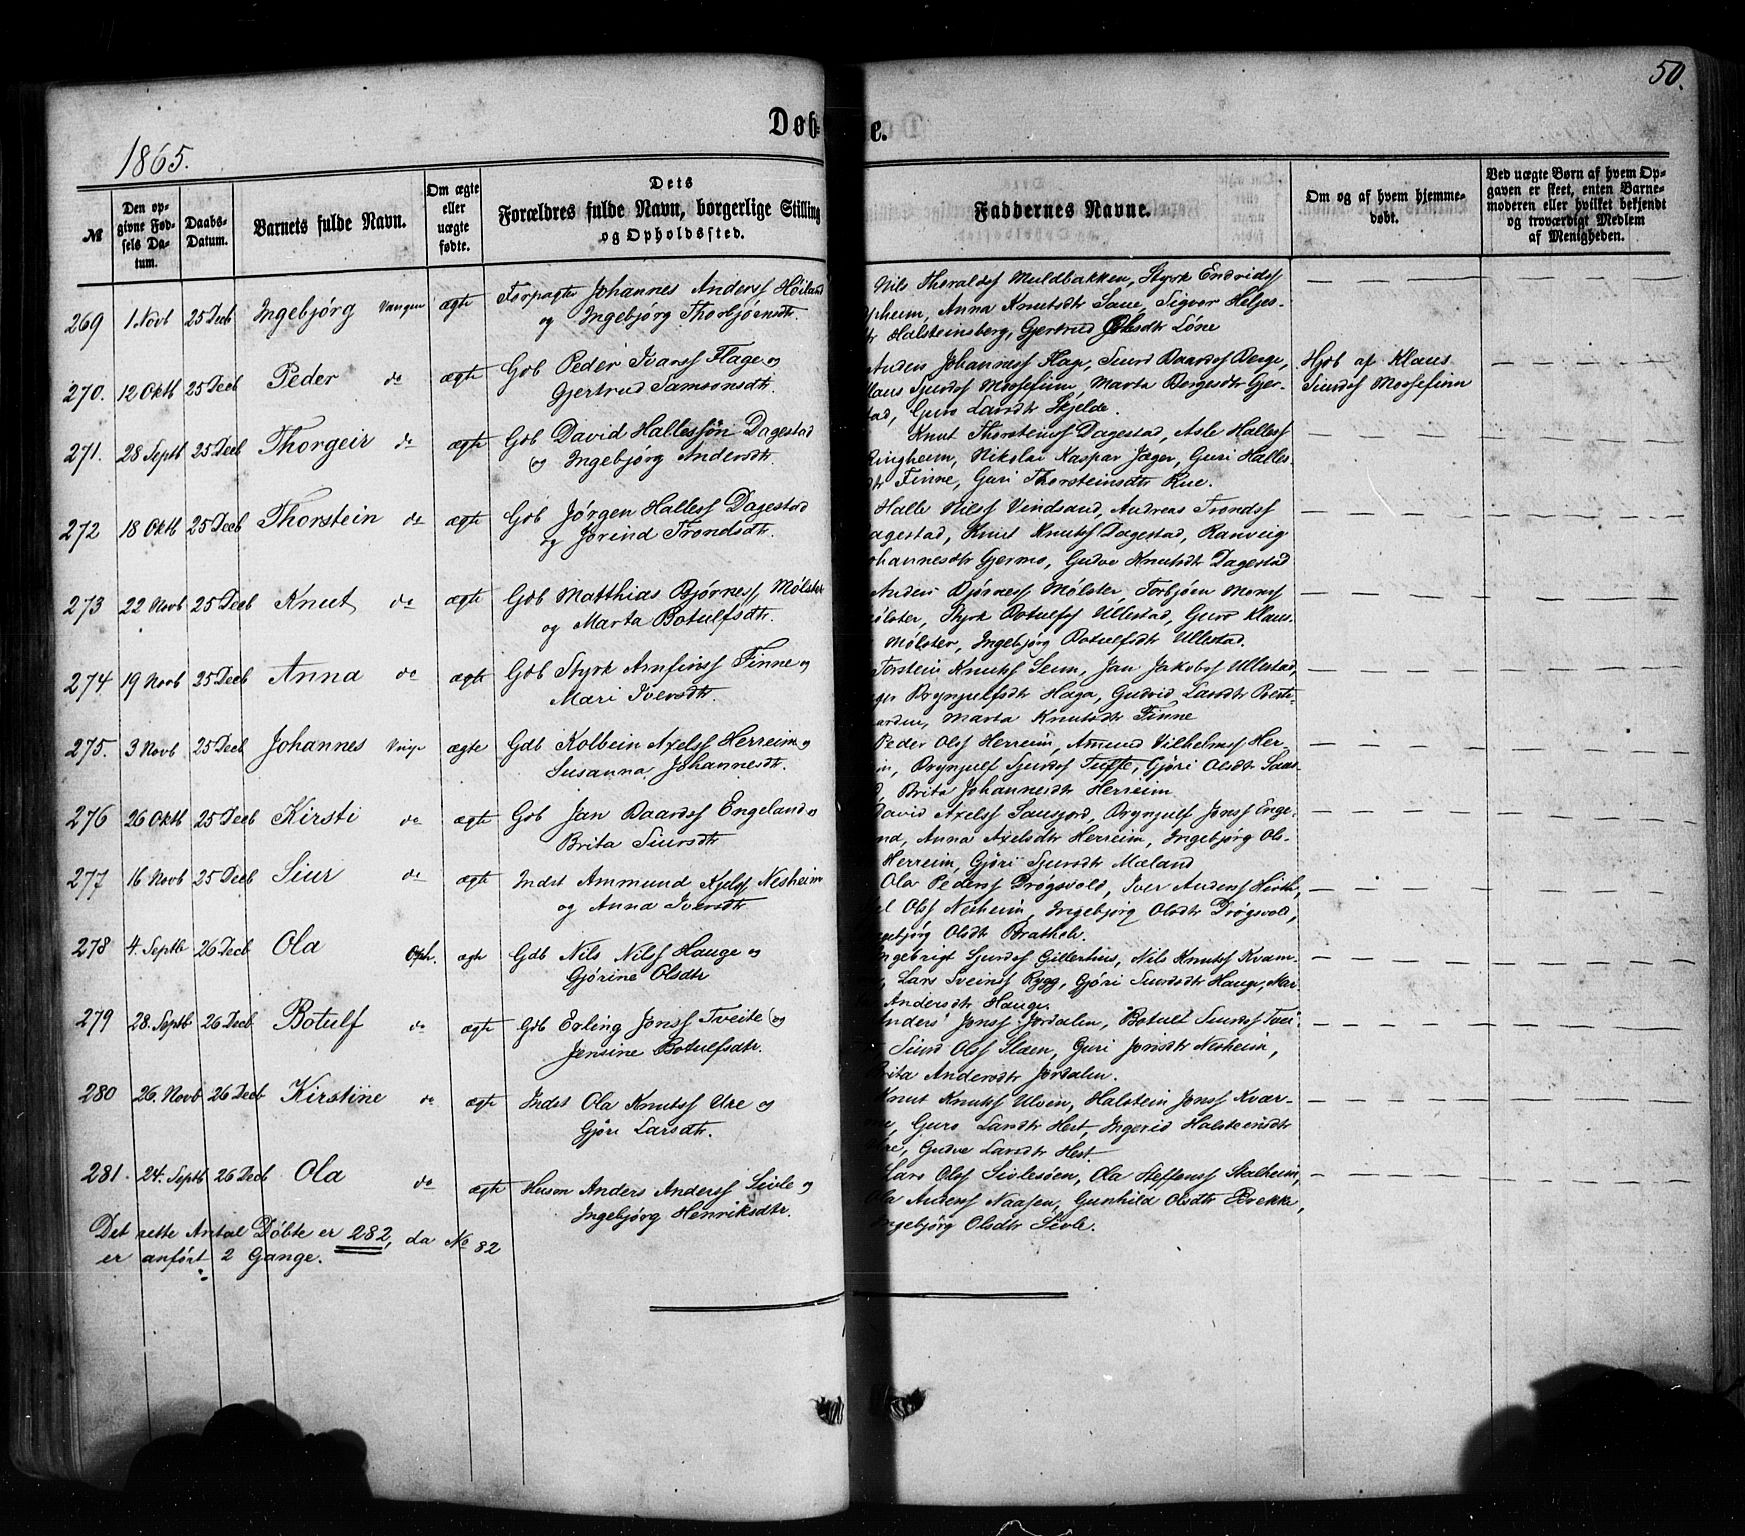 50.
Døb- e.
1865.
№
Den opgivne Fødsels Datum.
Daabs-Datum.
Barnets fulde Navn.
Om ægte eller uægte fødte.
Dets Forældres fulde Navn, borgerlige Stilling og Opholdssted.
Faddernes Navne.
Om og af hvem hjemmedøbt.
Ved uægte Børn af hvem Opgaven er skeet, enten Barnemoderen eller hvilket bekjendt og troværdigt Medlem af Menigheden.
269 1 Novb 25 Decb Ingebjørg Vangen ægte Forpagter Johannes Anderss Høiland
og Ingebjørg Thorbjørnsdtr.
Nils Thoraldss Muldbakken, Styrk Endridss
pheim, Anna Knutsdtr Saue, Sigvor Helges-
tr Halsteinsberg, Gjertrud Olsdtr Løne
270. 12 Oktb 25 Decb Peder do ægte Gdb Peder Ivarss Flage og
Gjertrud Samsonsdtr.
Anders Johanness Flage, Siurd Baardss Berge,
laus Sjurdss Mossefinn, Marta Bergesdtr Gjer-
tad, Guro Larsdtr Skjelde.
Hjdb af Klaus
Siurdss Mossefinn
271. 28 Septb 25 Decb Thorgeir do ægte Gdb David Hallessøn Dagestad
og Ingebjørg Andersdtr.
Knut Thorsteinss Dagestad, Asle Halless
Ringheim, Nikolai Kaspar Jæger, Guri Halles-
tr Finne, Guri Thorsteinsdtr Rue.
272 18 Oktb 25 Decb Thorstein do ægte Gdb Jørgen Halless Dagestad
og Jorind Trondsdtr.
Halle Nilss Vindsand, Andreas Trondss
agestad, Knut Knutss Dagestad, Ranveig
ohannesdtr Gjermo, Gudve Knutsdtr Dagestad
273 22 Novb 25 Decb Knut do ægte Gdb Matthias Bjørness Mølster
og Marta Botulfsdtr.
Anders Bjørness Mølster, Torbjørn Monss
ølster, Styrk Botulfss Ullestad, Guro Klaus-
Mølster, Ingebjørg Botulfsdtr Ullestad.
274 19 Novb 25 Decb Anna do ægte Gdb Styrk Arnfinss Finne og
Mari Iversdtr.
Torstein Knutss Seim, Jan Jakobss Ullestad,
ger Brynjulfsdtr Haga, Gudvid Larsdtr Berts-
arden, Marta Knutsdtr Finne
275. 3 Novb 25 Decb Johannes Vinje ægte Gdb Kolbein Axelss Herreim og
Susanna Johannesdtr.
Peder Olss Herreim, Amund Vilhelmss Her-
in, Brynjulf Sjurdss Tufte, Gjøri Olsdtr Saus-
Brita Johannesdtr Herreim
276 26 Oktb 25 Decb Kirsti do ægte Gdb Jan Baardss Engeland og
Brita Siursdtr
David Axelss Sausjord, Brynjulf Jonss Enge-
nd, Anna Axelsdtr Herreim, Ingebjørg Ols-
Herreim, Gjøri Sjursdtr Mæland
277 16 Novb 25 Decb Siur do ægte Indst Ammund Kjelss Nesheim
og Anna Iversdtr
Ola Pederss Drøgsvold, Iver Anderss Hirth,
el Olss Nesheim, Ingebjørg Olsdtr Drøgsvold,
gebjørg Olsdtr Brathole.
278 4. Septb 26 Decb Ola Oph. ægte Gdb Nils Nilss Hauge og
Gjørine Olsdtr
ngebrigt Sjurdss Gillerhus, Nils Knutss Kvam-
Lars Sveinss Rygg, Gjøri Siursdtr Hauge, Mar-
Andersdtr Hauge.
279 28. Septb 26 Decb Botulf do ægte Gdb Erling Jonss Tveite og
Jensine Botulfsdtr.
Anders Jonss Jordalen, Botulf Siurdss Tvei-
Siurd Olss Slaen, Guri Jonsdtr Nesheim,
Brita Andersdtr Jordalen.
280 26. Novb 26 Decb Kirstine do ægte Indst Ola Knutss Dre og
Gjøri Larsdtr.
Knut Knutss Ulven, Halstein Jonss Kvar-
me, Guro Larsdtr Hest, Ingerid Halsteinsdtr
Gudve Larsdtr Hest
281. 24. Septb 26 Decb Ola do ægte Husm Anders Anderss Sivle og
Ingebjørg Henriksdtr.
Lars Olss Sivlesøen, Ola Steffenss Stalheim,
Ola Anderss Naasen, Gunhild Olsdtr Brekke,
Ingebjørg Olsdtr Sivle.
Det rette Antal Døbte er 282, da No 82
er anført 2 Gange.